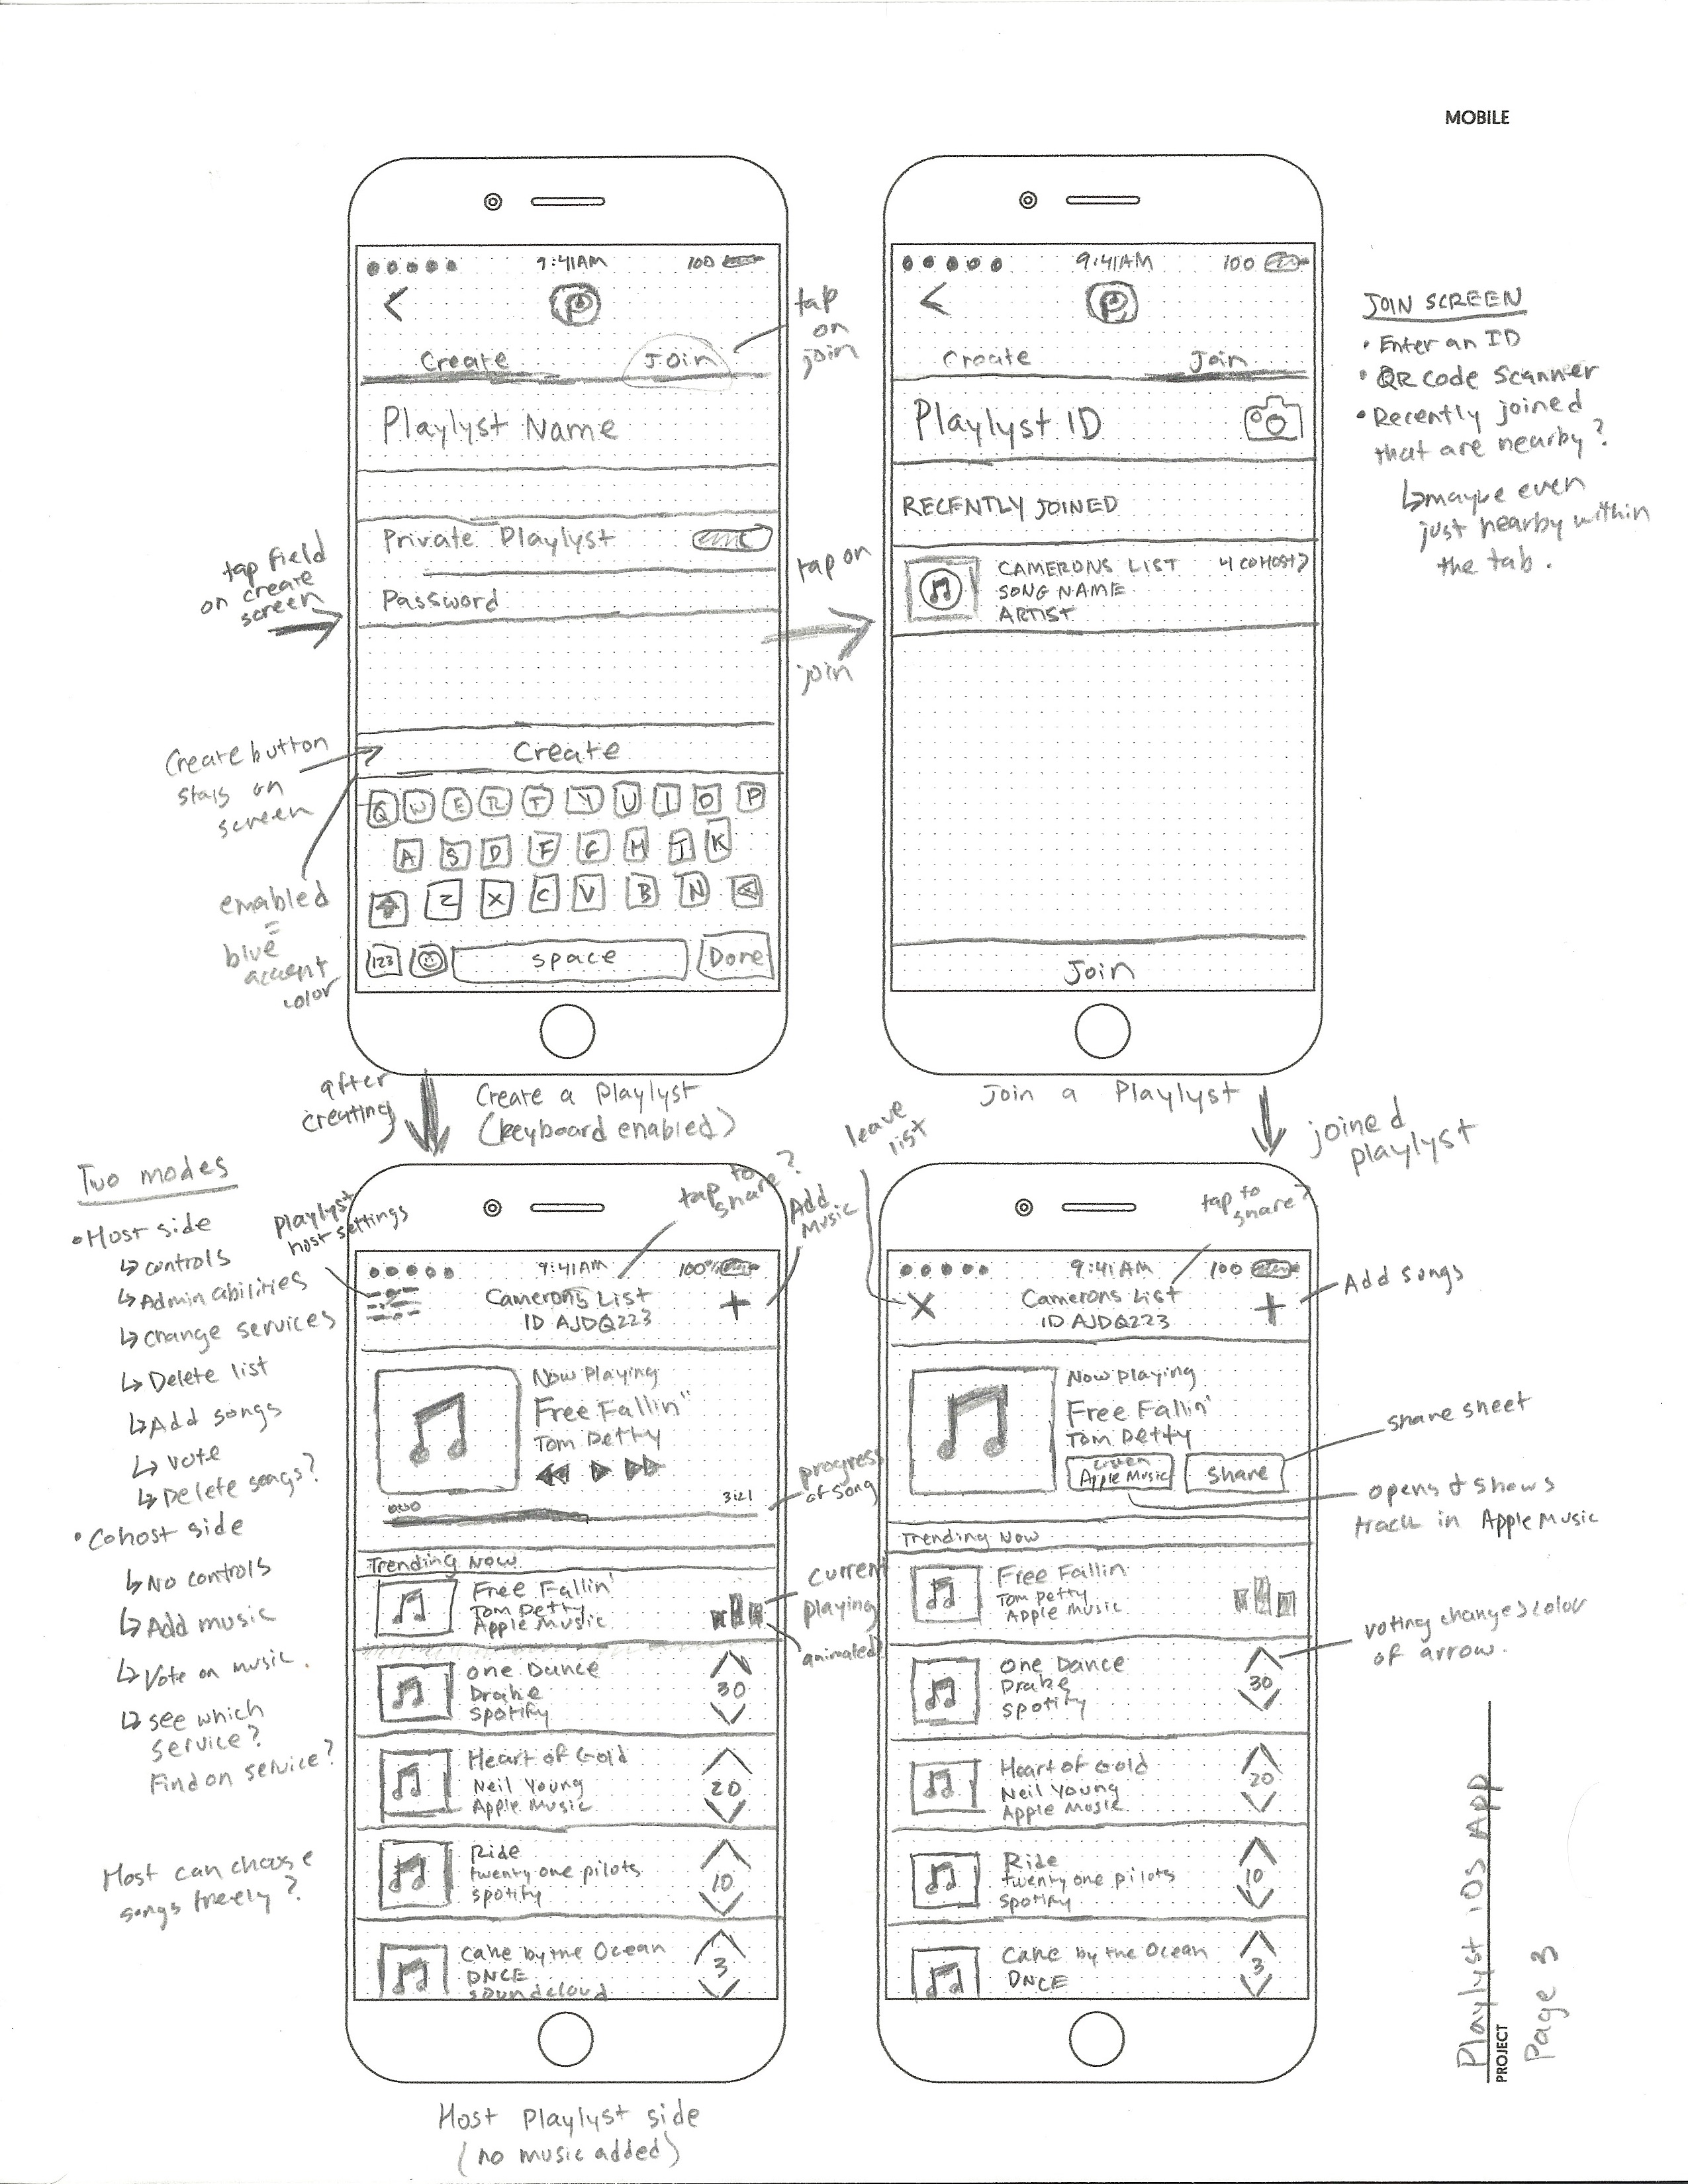 MOBILE
9:41AM
100
P
Create
Join
tap
on
join
Playlyst Name
Private Playlyst
Password
tap field
on create
screen
Create
Create button
stays on
screen
enabled
=
blue
accent
color
Q W E R T Y U I O P
A S D F G H J K
Z X C V B N
123
space
Done
tap on
join
9:41AM
100
P
Create
Join
Playlyst ID
RECENTLY JOINED
CAMERONS LIST
4 COHOST >
SONG NAME
ARTIST
Join
JOIN SCREEN
• Enter an ID
• QR code scanner
• Recently joined
that are nearby?
↳ maybe even
just nearby within
the tab.
after
creating
Create a Playlyst
(keyboard enabled)
Join a Playlyst
joined
playlyst
leave
list
Two modes
• Host side
↳ controls
↳ Admin abilities
↳ change services
↳ Delete list
↳ Add songs
↳ vote
↳ Delete songs?
• Cohost side
↳ No controls
↳ Add music
↳ Vote on music.
↳ see which
service?
Find on service?
Host can choose
songs freely?
playlyst
host settings
tap to
share?
Add
Music
9:41AM
100%
Camerons List
ID AJDQ223
+
Now Playing
Free Fallin'
Tom Petty
3:21
progress
of song
Trending Now
Free Fallin'
Tom Petty
Apple Music
current
playing
animated
One Dance
Drake
Spotify
30
Heart of Gold
Neil Young
Apple Music
20
Ride
twenty one pilots
spotify
10
Cake by the Ocean
DNCE
soundcloud
3
Host Playlyst side
(no music added)
tap to
share?
9:41AM
100
X
Camerons List
ID AJDQ223
+
Add songs
Now Playing
Free Fallin'
Tom Petty
Listen
Apple Music
Share
share sheet
opens & shows
track in Apple Music
Trending Now
Free Fallin
Tom Petty
Apple Music
voting changes color
of arrow.
One Dance
Drake
spotify
30
Heart of Gold
Neil Young
Apple Music
20
Ride
twenty one pilots
spotify
10
Cake by the Ocean
DNCE
3
Playlyst iOS App
PROJECT
Page 3